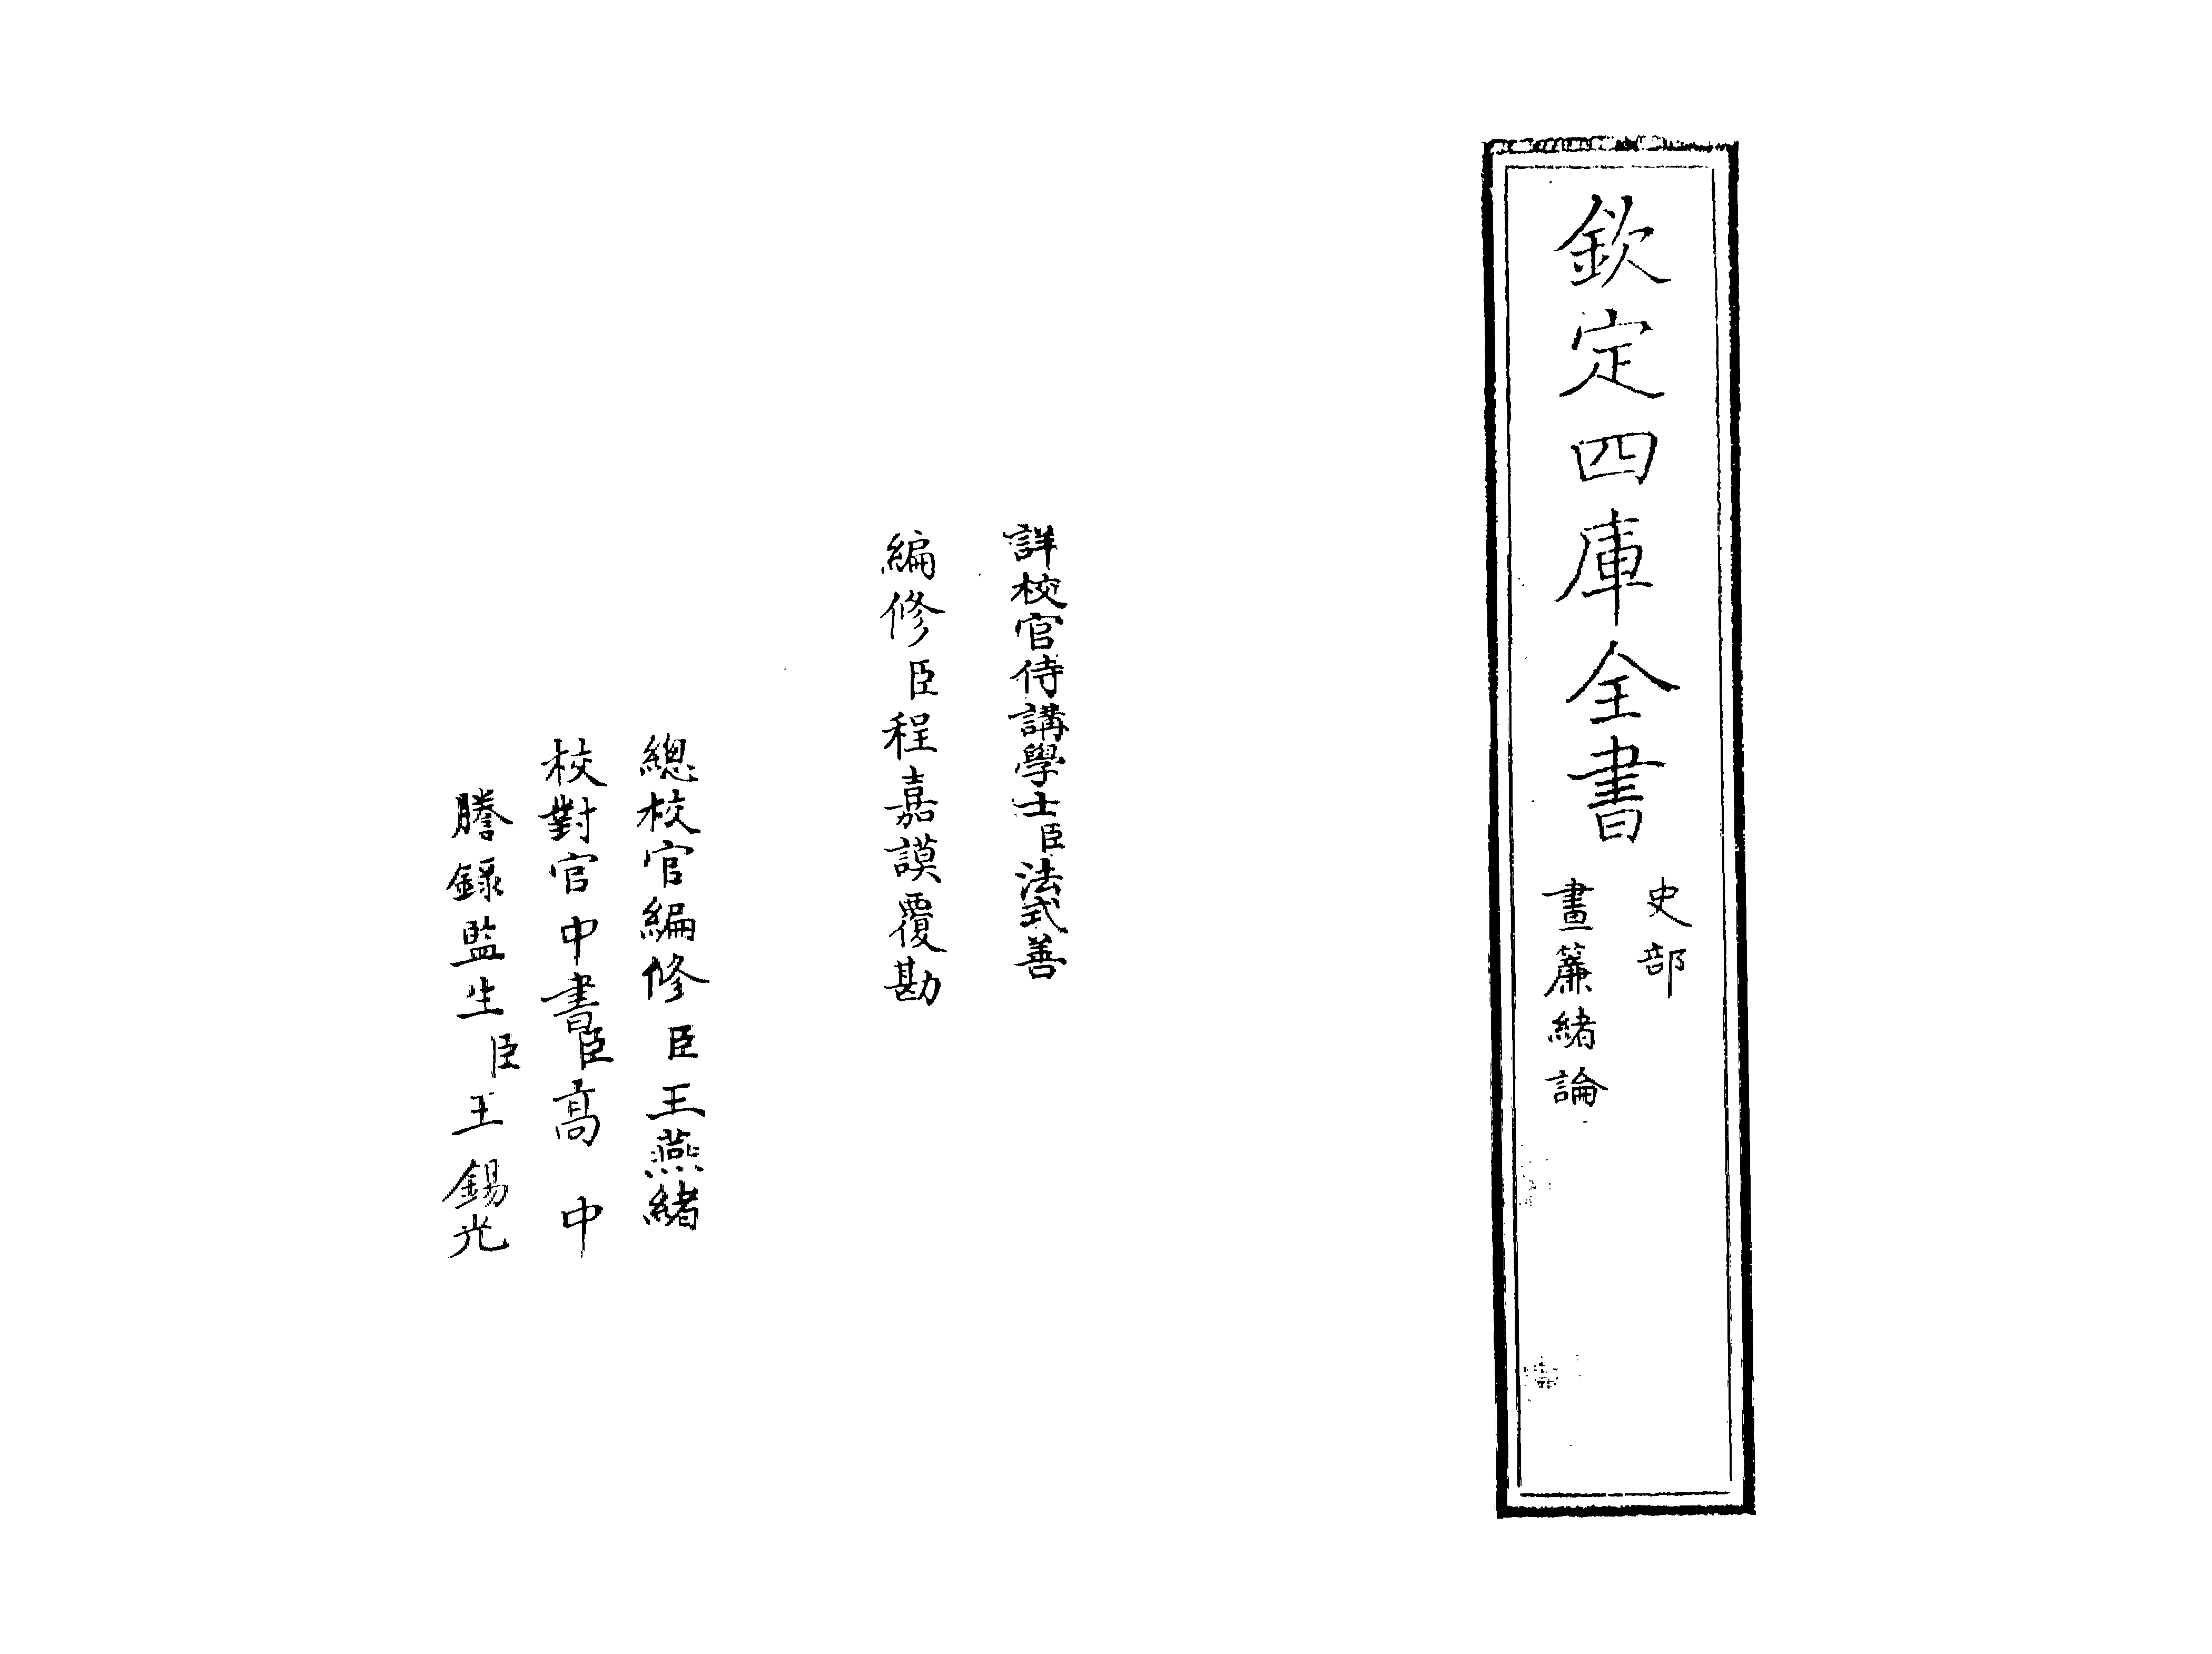 欽定四庫全書
史部
晝簾緒論
詳校官侍講學士臣法式善
編修臣程嘉謨覆勘
總校官編修臣王燕緒
校對官中書臣高中
謄錄監生臣王錫光